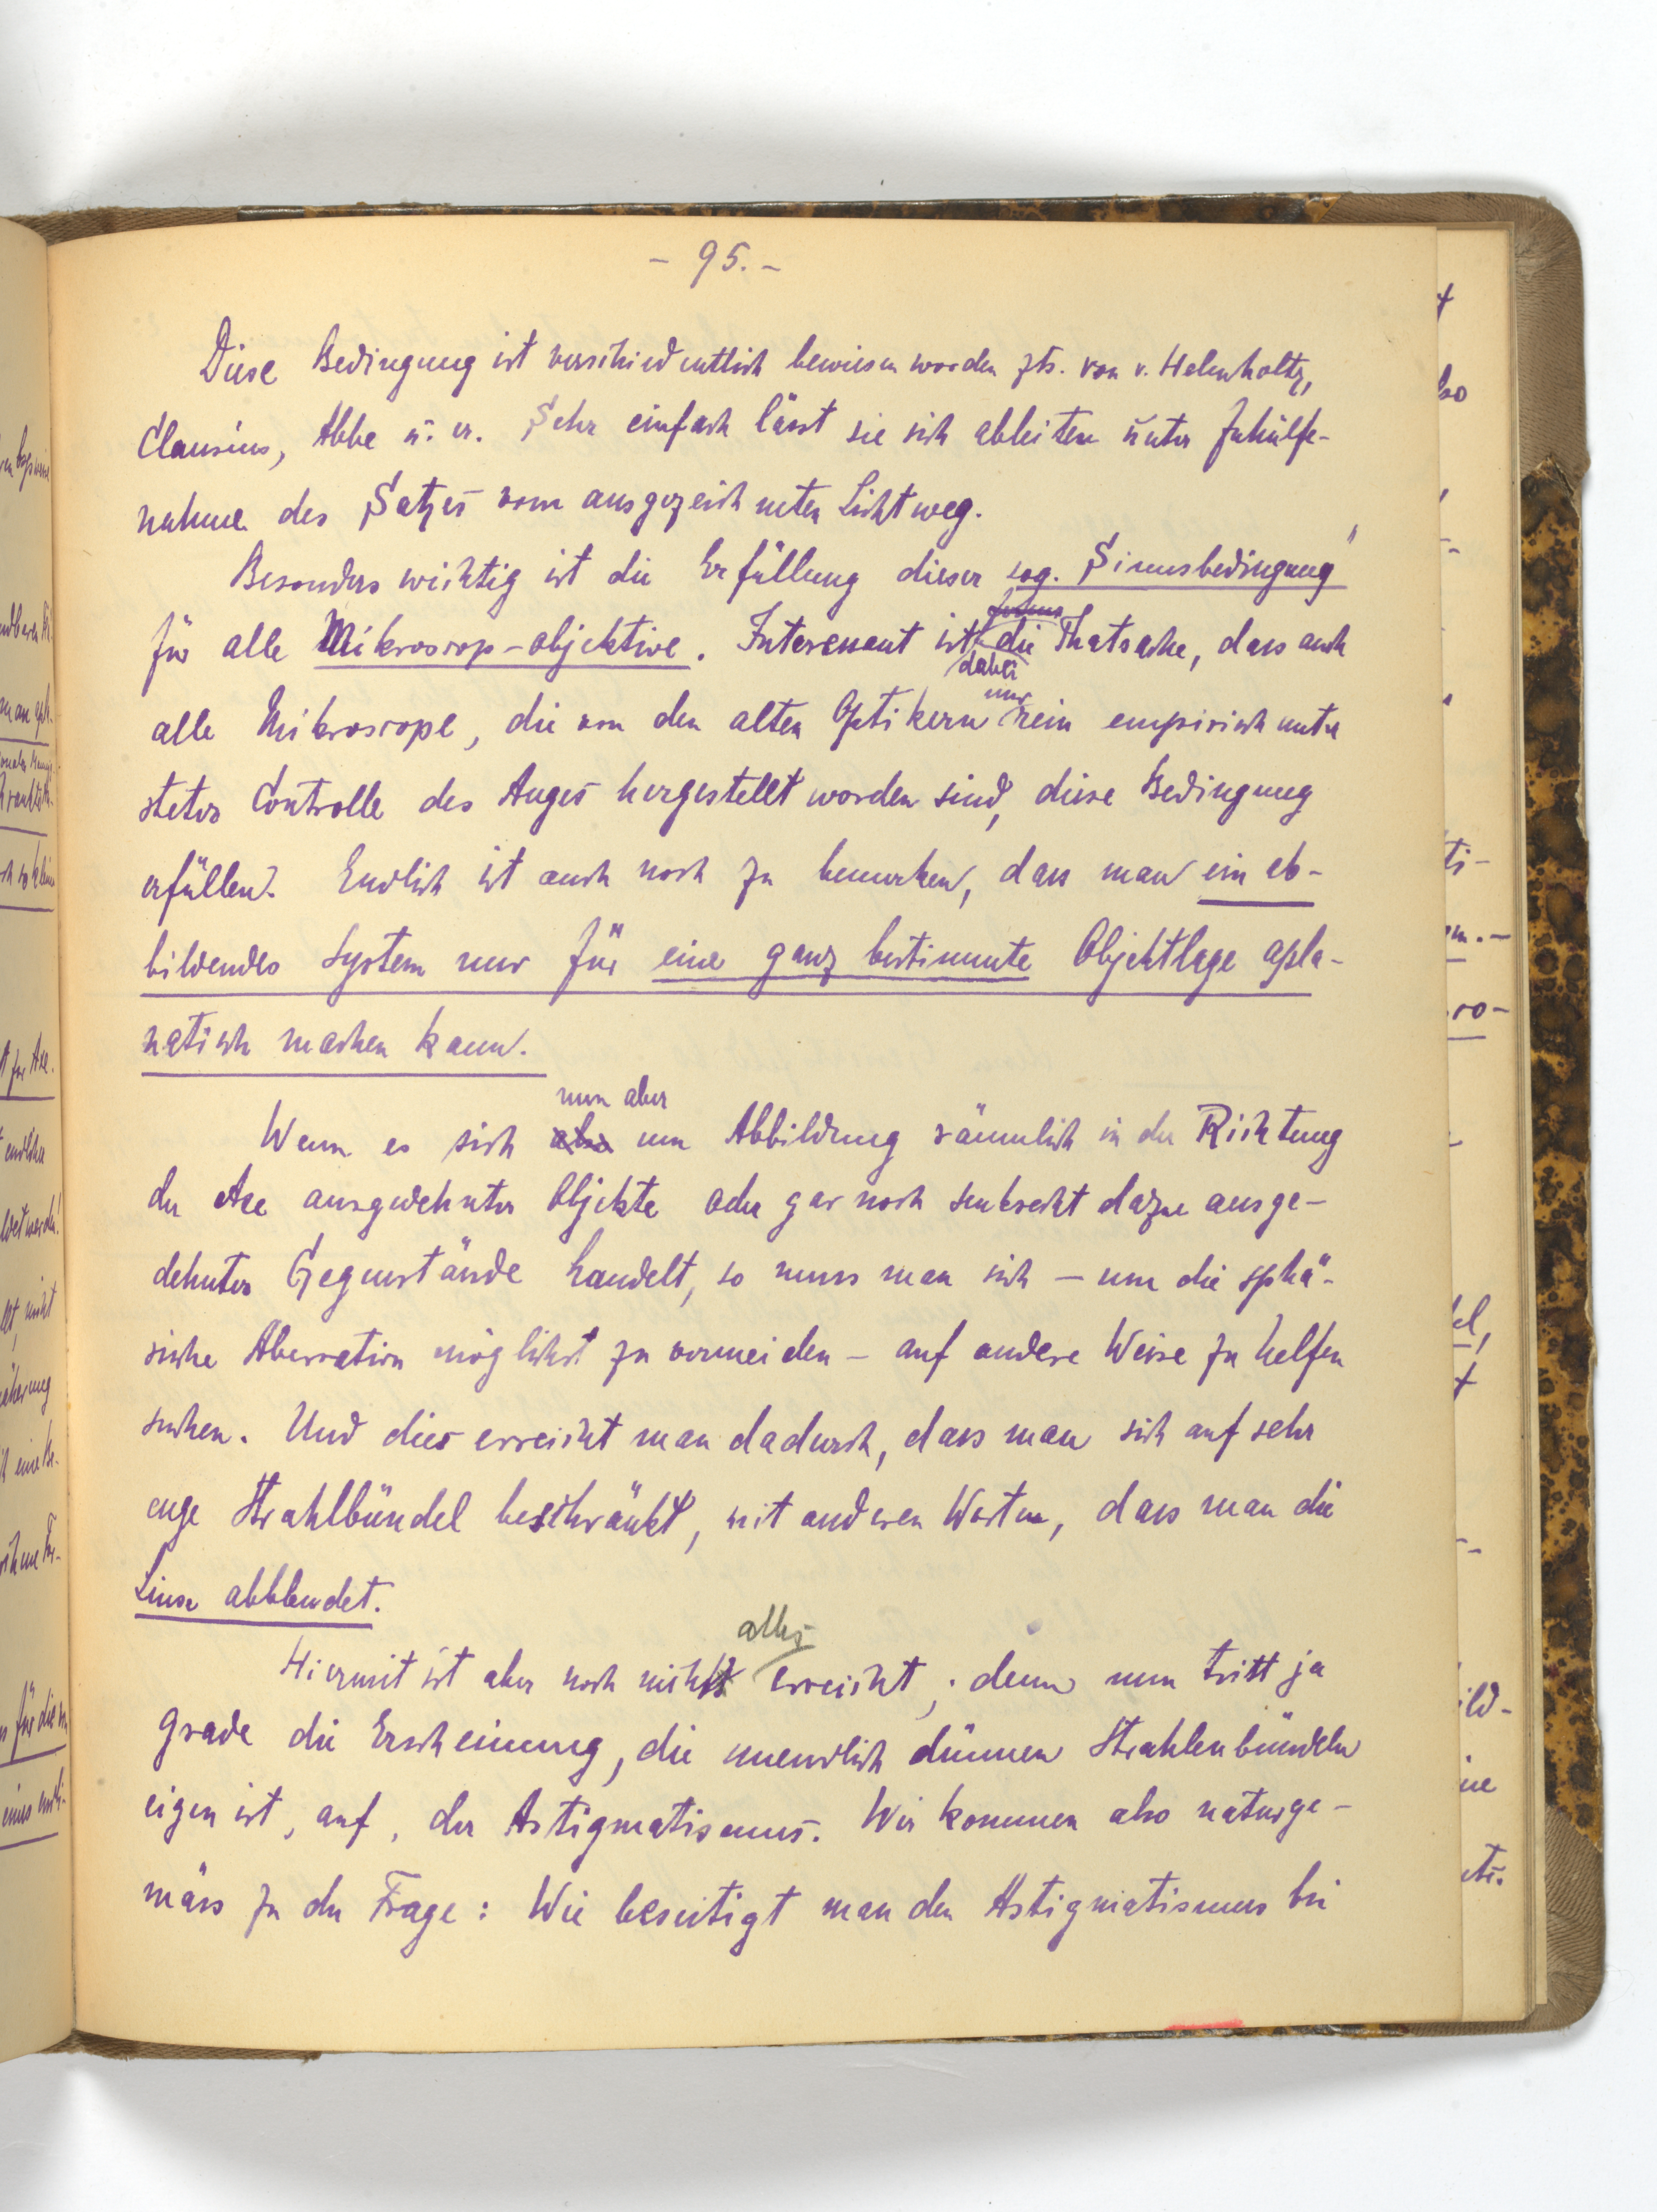 - 95. -
Diese Bedingung ist verschiedentlich bewiesen worden von v. Helmholtz,
Clausius, Abbe u. a. Sehr einfach lässt sie sich ableiten unter Zuhülfe-
nahme des Satzes vom ausgezeichneten Lichtweg.
Besonders wichtig ist die Erfüllung dieser sog. Sinusbedingung
für alle Mikroscop-objektive. Interessant ist dabei die Thatsache, dass auch
alle Mikroscope, die von den alten Optikern nur rein empirisch unter
steter Controlle des Auges hergestellt worden sind, diese Bedingung
erfüllen. Endlich ist auch noch zu bemerken, dass man ein ab-
bildendes System nur für eine ganz bestimmte Objektlage apla-
natisch machen kann.
Wenn es sich nun aber um Abbildung räumlich in der Richtung
der Axe ausgedehnter Objekte oder gar noch senkrecht dazu ausge-
dehnter Gegenstände handelt, so muss man sich — um die sphä-
rische Aberration möglichst zu vermeiden — auf andere Weise zu helfen
suchen. Und dies erreicht man dadurch, dass man sich auf sehr
enge Strahlbündel beschränkt, mit anderen Worten, dass man die
Linse abblendet.
Hiermit ist aber noch nicht alles erreicht; denn nun tritt ja
grade die Erscheinung, die unendlich dünnen Strahlenbündeln
eigen ist, auf, der Astigmatismus. Wir kommen also naturge-
mäss zu der Frage: Wie beseitigt man den Astigmatismus bei